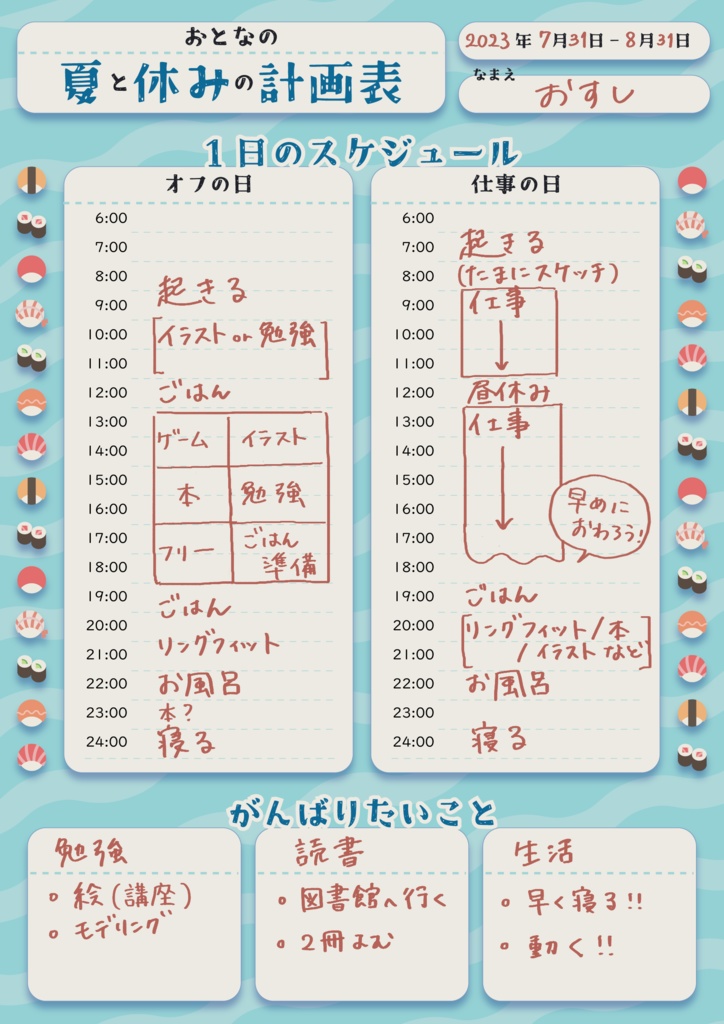 おとなの
夏と休みの計画表
2023年 7月31日 - 8月31日
なまえ
おすし
1日のスケジュール
オフの日
6:00
7:00
8:00
起きる
9:00
10:00 イラスト or 勉強
11:00
12:00 ごはん
13:00
ゲーム イラスト
14:00
15:00
本 勉強
16:00
17:00 ごはん
フリー 準備
18:00
19:00 ごはん
20:00
リングフィット
21:00
22:00 お風呂
23:00 本?
24:00 寝る
仕事の日
6:00
7:00 起きる
8:00 (たまにスケッチ)
9:00 仕事
10:00
11:00
12:00 昼休み
13:00 仕事
14:00
15:00
16:00 早めに
17:00 おわろう!
18:00
19:00 ごはん
20:00 リングフィット/本
21:00 /イラストなど
22:00 お風呂
23:00
24:00 寝る
がんばりたいこと
勉強
○ 絵(講座)
○ モデリング
読書
○ 図書館へ行く
○ 2冊よむ
生活
○ 早く寝る!!
○ 動く!!